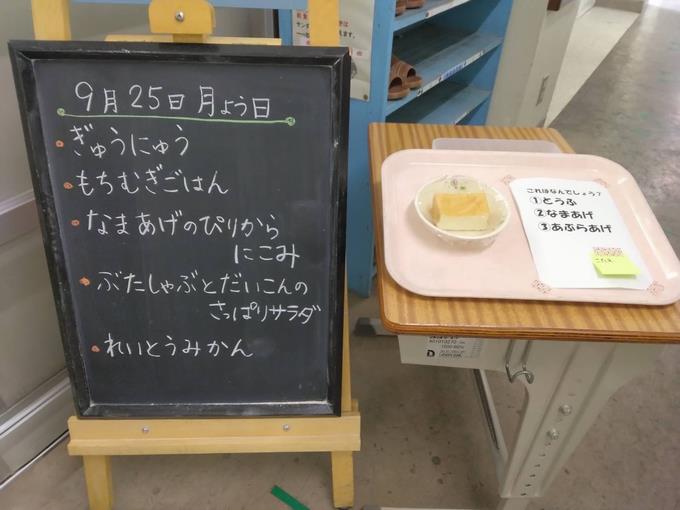 9月25日月よう日
ぎゅうにゅう
もちむぎごはん
なまあげのぴりから
にこみ
ぶたしゃぶとだいこんの
さっぱりサラダ
れいとうみかん
これはなんでしょう?
①とうふ
②なまあげ
③あぶらあげ
こたえ
D